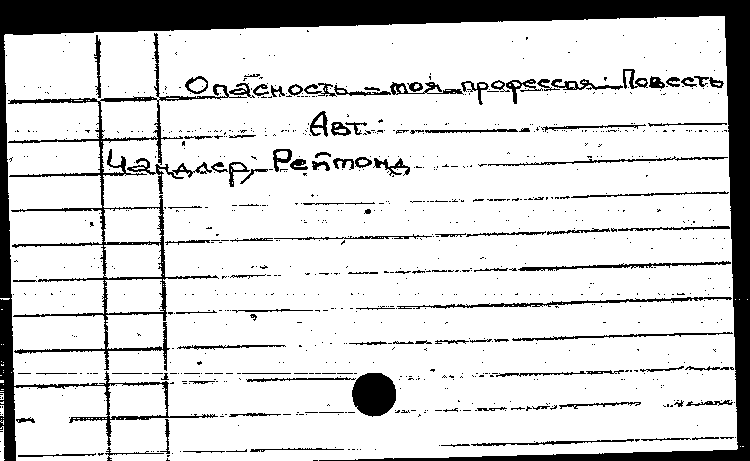 Опасность - моя профессия: Повесть
Авт.:
Чандлер, Реймонд